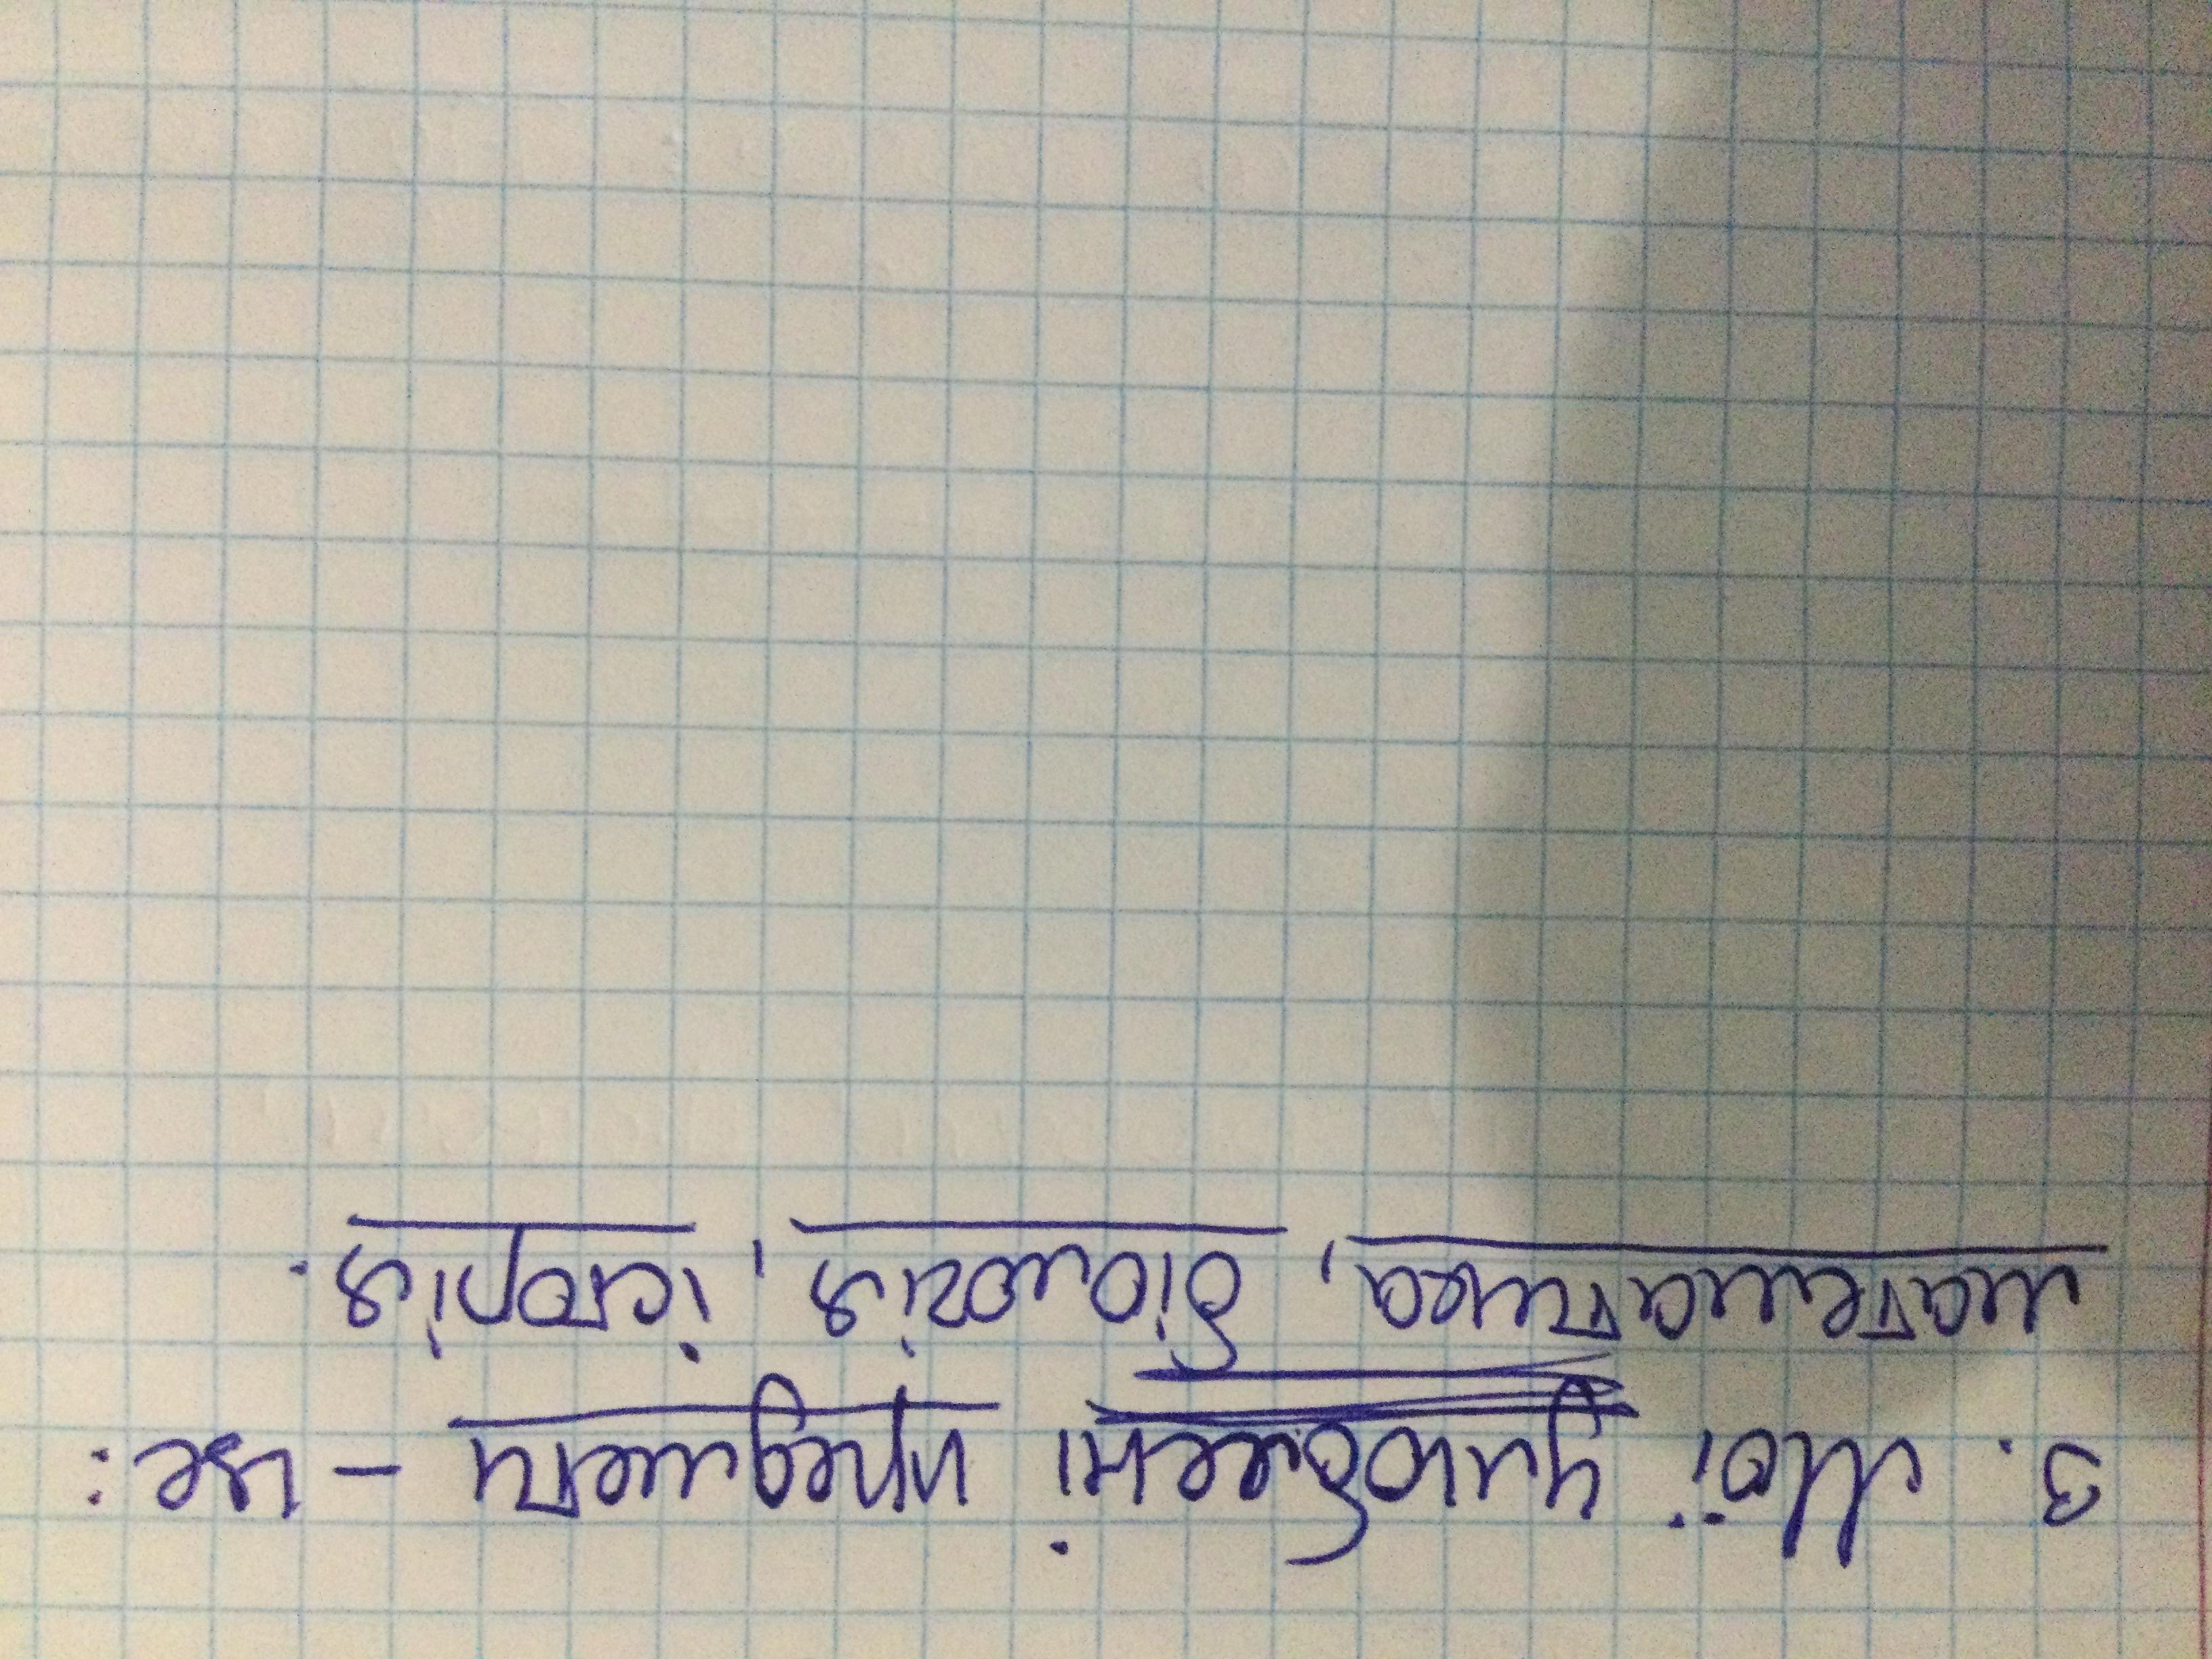 3. Мої улюблені предмети – це:
математика, біологія, історія.